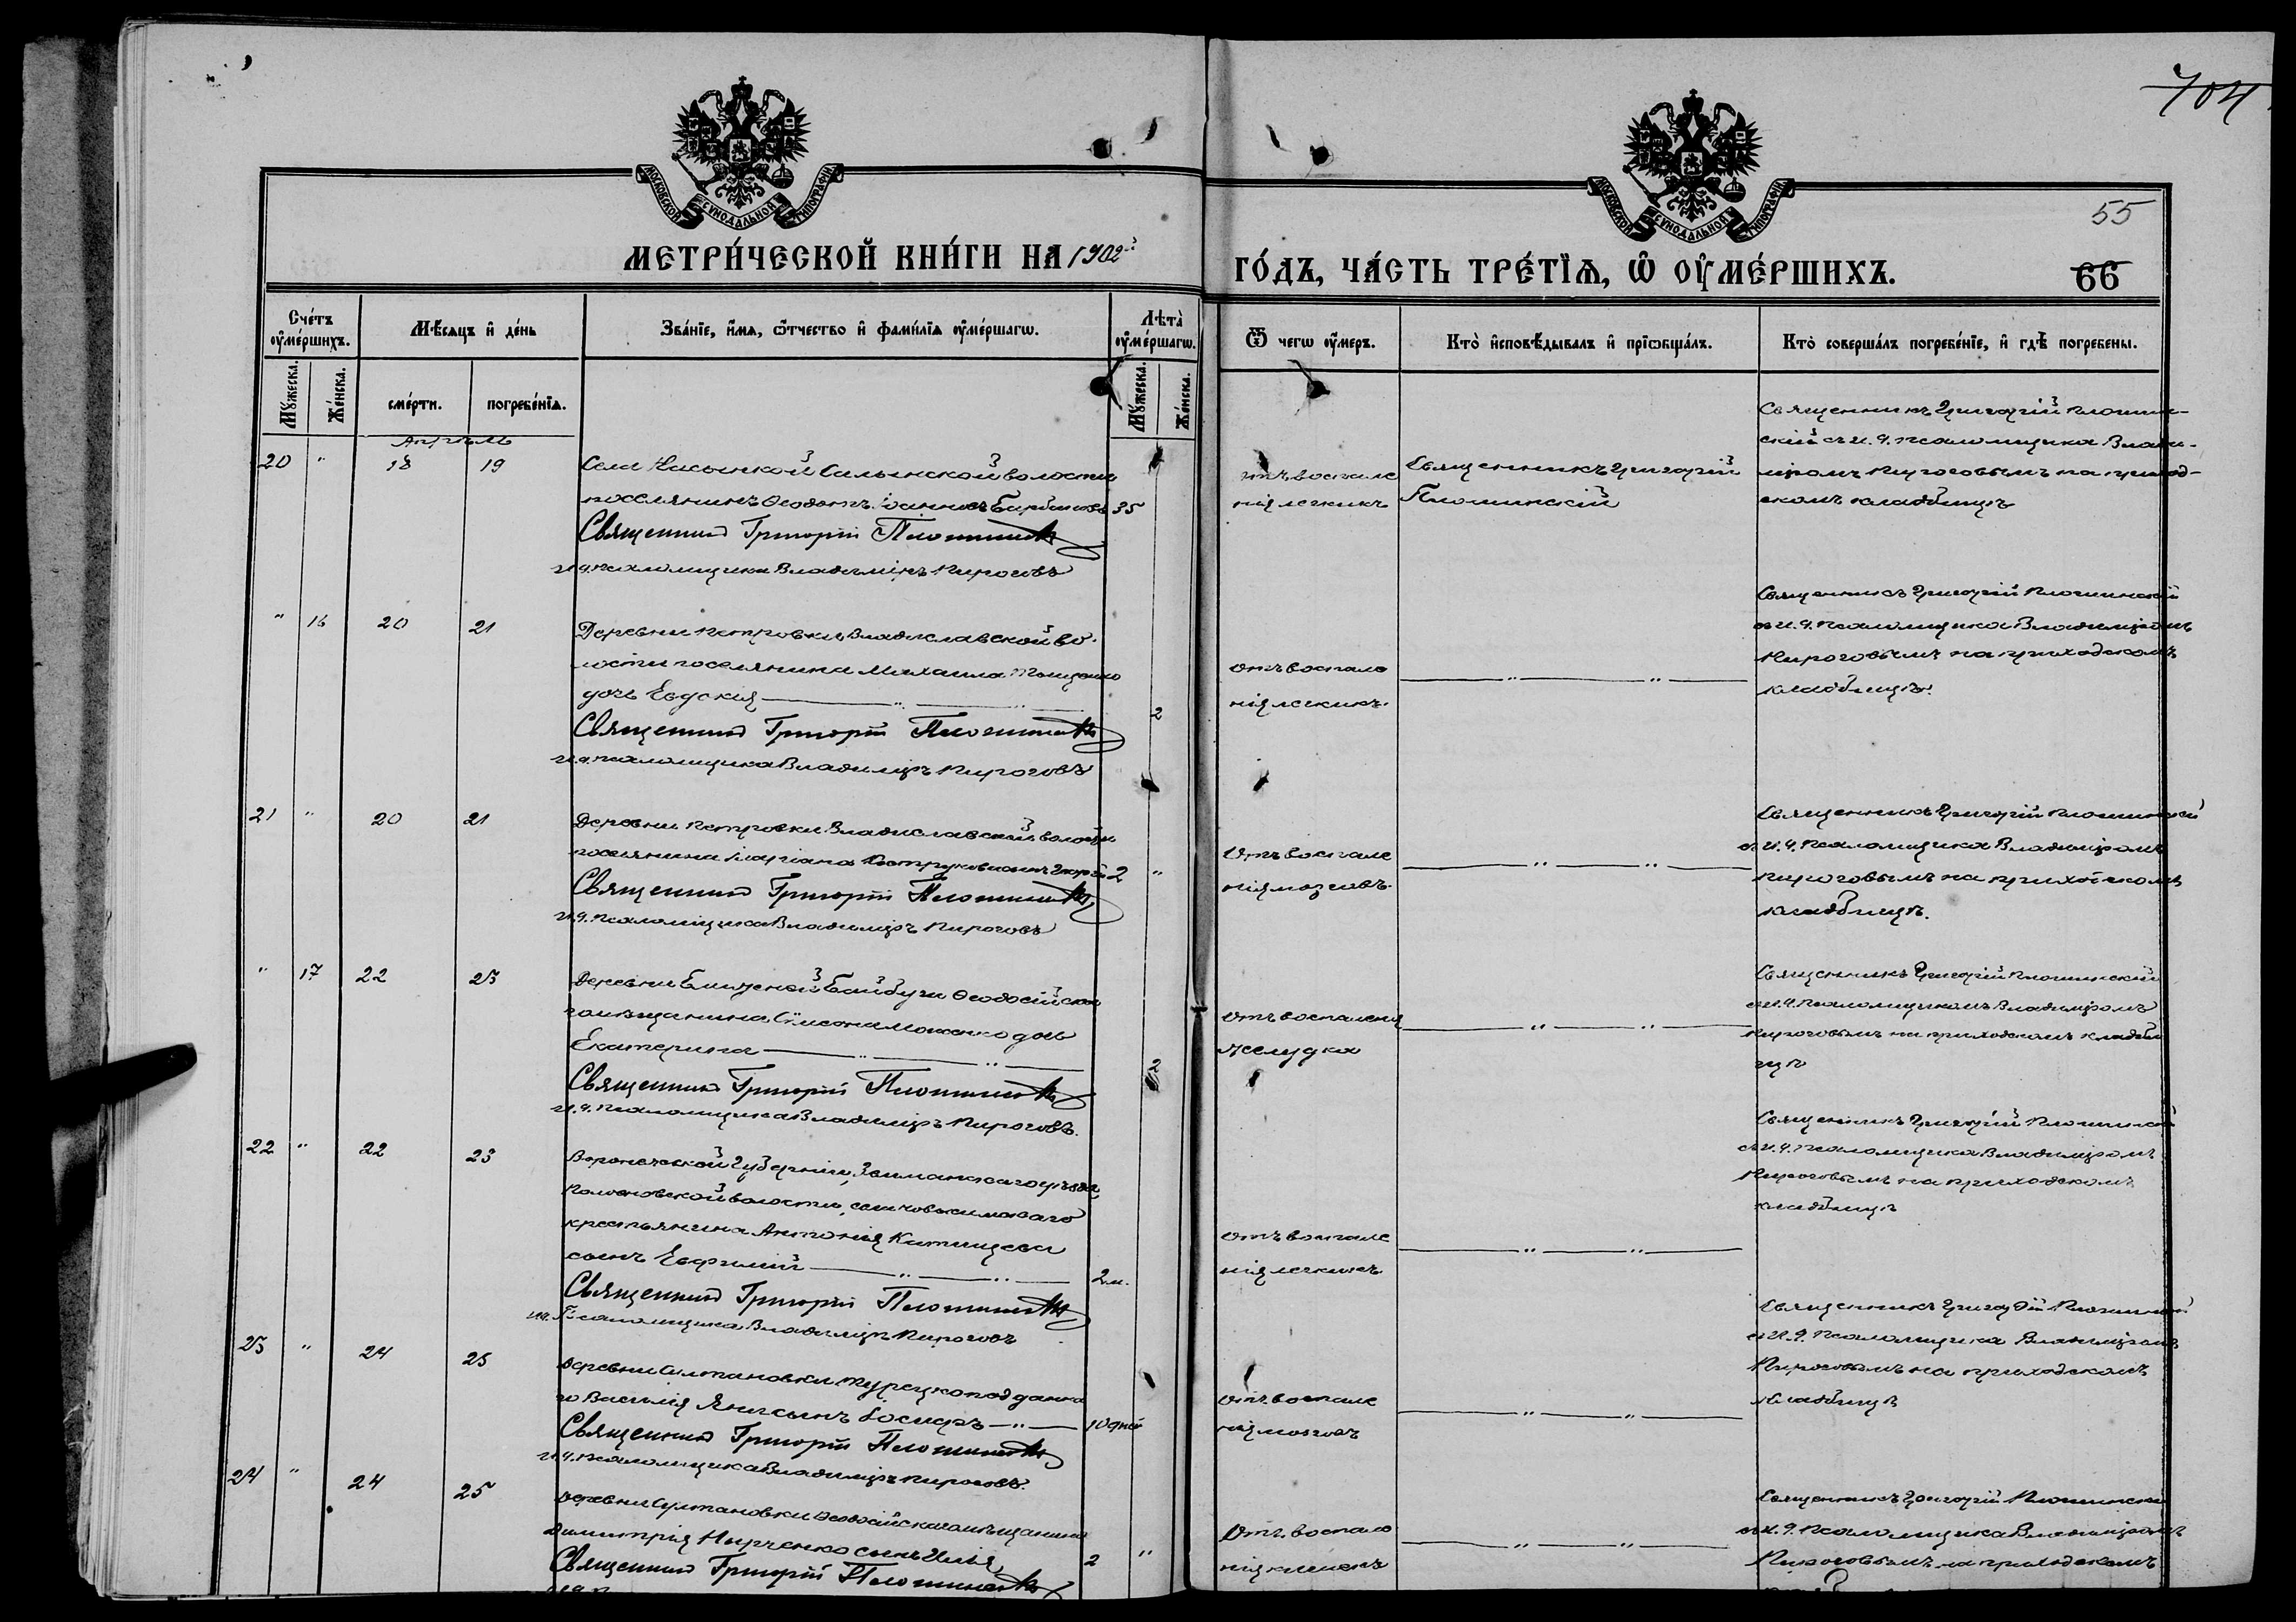 704
МОСКОВСКОЙ СѴНОДАЛЬНОЙ ТИПОГРАФІИ
МОСКОВСКОЙ СѴНОДАЛЬНОЙ ТИПОГРАФІИ
55
МЕТРИ́ЧЕСКОЙ КНИ́ГИ НА 1902й
ГО́ДЪ, ЧА́СТЬ ТРЕ́ТЇѦ, Ѡ ОУ҆МЕ́РШИХЪ.
66
Сче́тъ оу҆ме́ршихъ.
Мѣ́сяцъ и҆ де́нь
Зва́нїе, и҆́мя, ѻ҆́тчество и҆ фами́лїя оу҆ме́ршагѡ.
Лѣта̀ оу҆ме́ршагѡ.
Ѿ чегѡ оу҆́меръ.
Кто̀ и҆сповѣ́дывалъ и҆ прїѡбща́лъ.
Кто̀ соверша́лъ погребе́нїе, и҆ гдѣ̀ погребены.
Му́жеска.
Же́нска.
сме́рти.
погребе́нїя.
Му́жеска.
Же́нска.
Апрѣль
20 " 18 19
Села Насыпкой Салынской волости
поселянинъ Ѳеодотъ Іоанновъ 35
Священникъ Григорій Плотинскій
И.ч. псаломщика Владиміръ Пироговъ
отъ воспале
нія легкихъ
Священникъ Григорій
Плотинскій
Священникъ Григорій Плотин-
скій съ и. ч. псаломщика Влади-
міромъ Пироговымъ на приход-
скомъ кладбищѣ
" 16 20 21
Деревни Петровки Владиславской во-
лости поселянина Михаила
дочь Евдокія — " — " — 2
Священникъ Григорій Плотинскій
И.ч. псаломщика Владиміръ Пироговъ
отъ воспале
нія легкихъ.
— " — " —
Священникъ Григорій Плотинскій
съ и. ч. псаломщика Владиміромъ
Пироговымъ на приходскомъ
кладбищѣ.
21 " 20 21
Деревни Петровки Владиславской волости
поселянина сынъ Георгій 2 "
Священникъ Григорій Плотинскій
И.ч. псаломщика Владиміръ Пироговъ
Отъ воспале
нія мозговъ
— " — " —
Священникъ Григорій Плотинскій
съ и. ч. псаломщика Владиміромъ
Пироговымъ на приходскомъ
кладбищѣ.
" 17 22 23
Деревни Ближней Байбуги Ѳеодосійска
го мѣщанина Симеона дочь
Екатерина — " — " — 2
Священникъ Григорій Плотинскій
И.ч. псаломщика Владиміръ Пироговъ.
Отъ воспаленія
желудка
— " — " —
Священникъ Григорій Плотинскій
съ и. ч. псаломщикомъ Владиміромъ
Пироговымъ на приходскомъ кладби
щѣ
22 " 22 23
Воронежской губерніи, уѣзда,
волости, села
крестьянина Антонія
сынъ Евфимій — " — " — 2 м.
Священникъ Григорій Плотинскій
и.ч. Псаломщика Владиміръ Пироговъ
отъ воспале
нія легкихъ
— " — " —
Священникъ Григорій Плотинскій
съ и. ч. псаломщика Владиміромъ
Пироговымъ на приходскомъ
кладбищѣ
23 " 24 25
Деревни Султановки турецкоподданна
го Василія Яни сынъ — " — 10 дней
Священникъ Григорій Плотинскій
И.ч. псаломщика Владиміръ Пироговъ.
Отъ воспале
нія мозговъ
— " — " —
Священникъ Григорій Плотинскій
съ и. ч. псаломщика Владиміромъ
Пироговымъ на приходскомъ
кладбищѣ
24 " 24 25
Деревни Султановки Ѳеодосійскаго мѣщанина
Димитрія сынъ Илья 2 "
Священникъ Григорій Плотинскій
Отъ воспале
нія кишекъ
— " — " —
Священникъ Григорій Плотинскій
съ и. ч. псаломщика Владиміромъ
Пироговымъ на приходскомъ